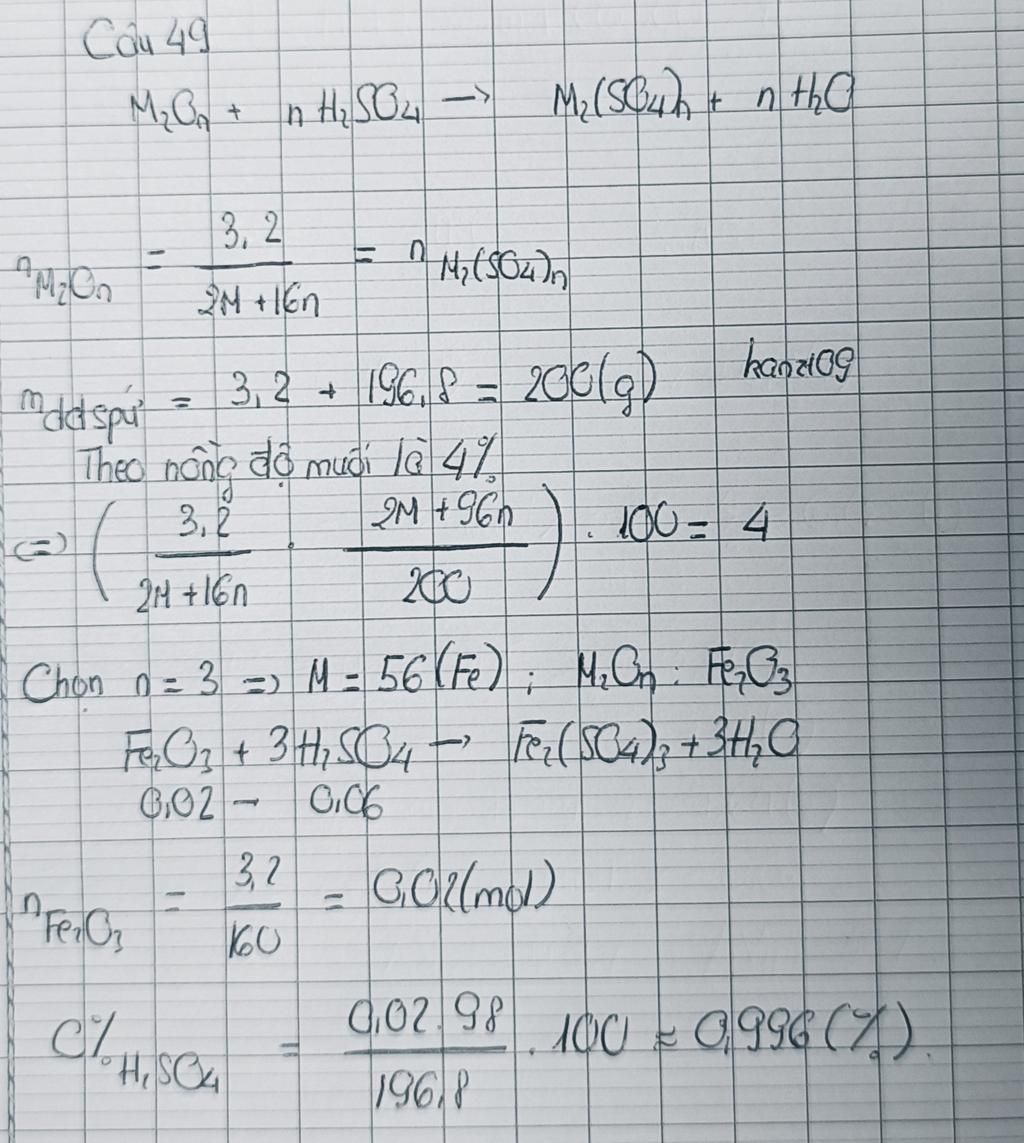 Câu 49
M₂Oₙ + n H₂SO₄ → M₂(SO₄)ₙ + n H₂O
n M₂Oₙ = 3,2 / (2M + 16n) = n M₂(SO₄)ₙ
m dd spứ = 3,2 + 196,8 = 200(g) hanzi09
Theo nồng độ muối là 4%
<=> ( 3,2 / (2M + 16n) . (2M + 96n) / 200 ) . 100 = 4
Chọn n = 3 => M = 56 (Fe) ; M₂Oₙ : Fe₂O₃
Fe₂O₃ + 3H₂SO₄ → Fe₂(SO₄)₃ + 3H₂O
0,02 - 0,06
n Fe₂O₃ = 3,2 / 160 = 0,02(mol)
C% H₂SO₄ = 0,02.98 / 196,8 . 100 ≈ 0,996 (%).